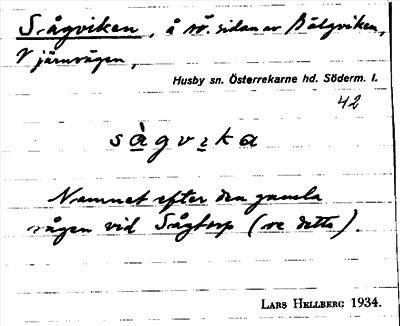 Sågviken, å sö. sidan av Bälgviken,
V järnvägen,
Husby sn. Österrekarne hd. Söderm. l.
42
sågvika
Namnet efter den gamla
sågen vid Sågtorp (se detta).
LARS HELLBERG 1934.